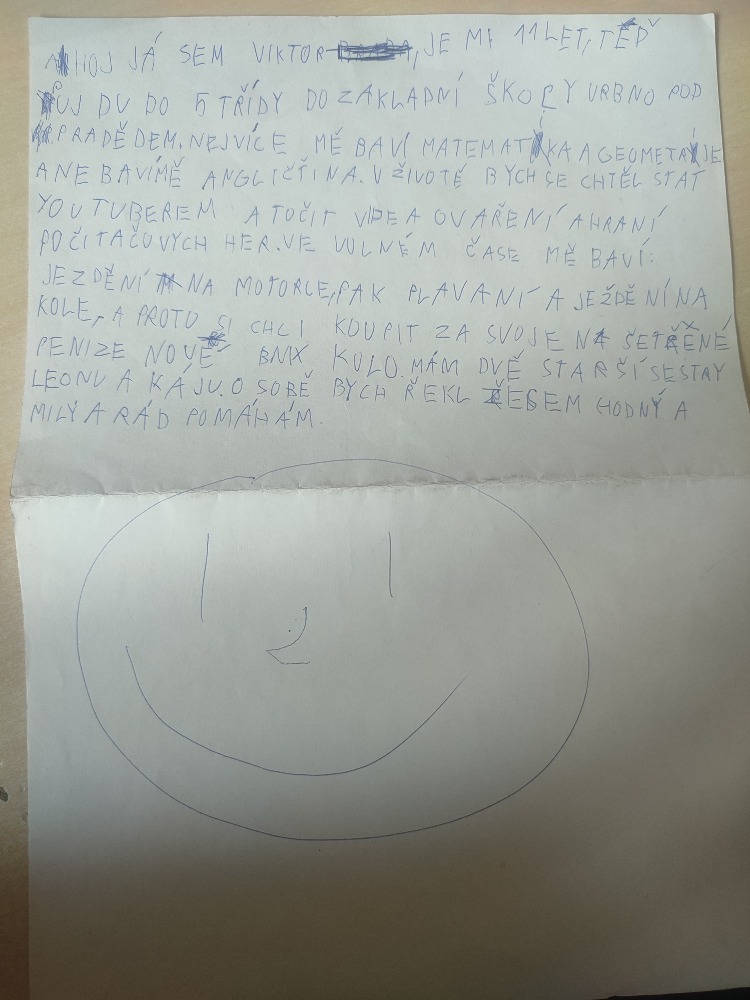 AHOJ JÁ SEM VIKTOR, JE MI 11 LET, TĚĎ
PŮJDU DO 5 TŘÍDY DO ZÁKLADNÍ ŠKOLY VRBNO POD
PRADĚDEM. NEJVÍCE MĚ BAVÍ MATEMATIKA A GEOMETRIJE
A NEBAVÍ MĚ ANGLIČTINA. V ŽIVOTĚ BYCH SE CHTĚL STÁT
YOUTUBEREM A TOČIT VIDEA O VAŘENÍ A HRANÍ
POČÍTAČOVÝCH HER. VE VOLNÉM ČASE MĚ BAVÍ:
JEZDĚNÍ NA MOTORCE, PAK PLAVÁNÍ A JEŽDĚNÍ NA
KOLE, A PROTO SI CHCI KOUPIT ZA SVOJE NAŠETŘENÉ
PENIZE NOVÉ BMX KOLO. MÁM DVĚ STARŠÍ SESTRY
LEONU A KÁJU. O SOBĚ BYCH ŘEKL ŽE SEM HODNÝ A
MILÝ A RÁD POMÁHÁM.